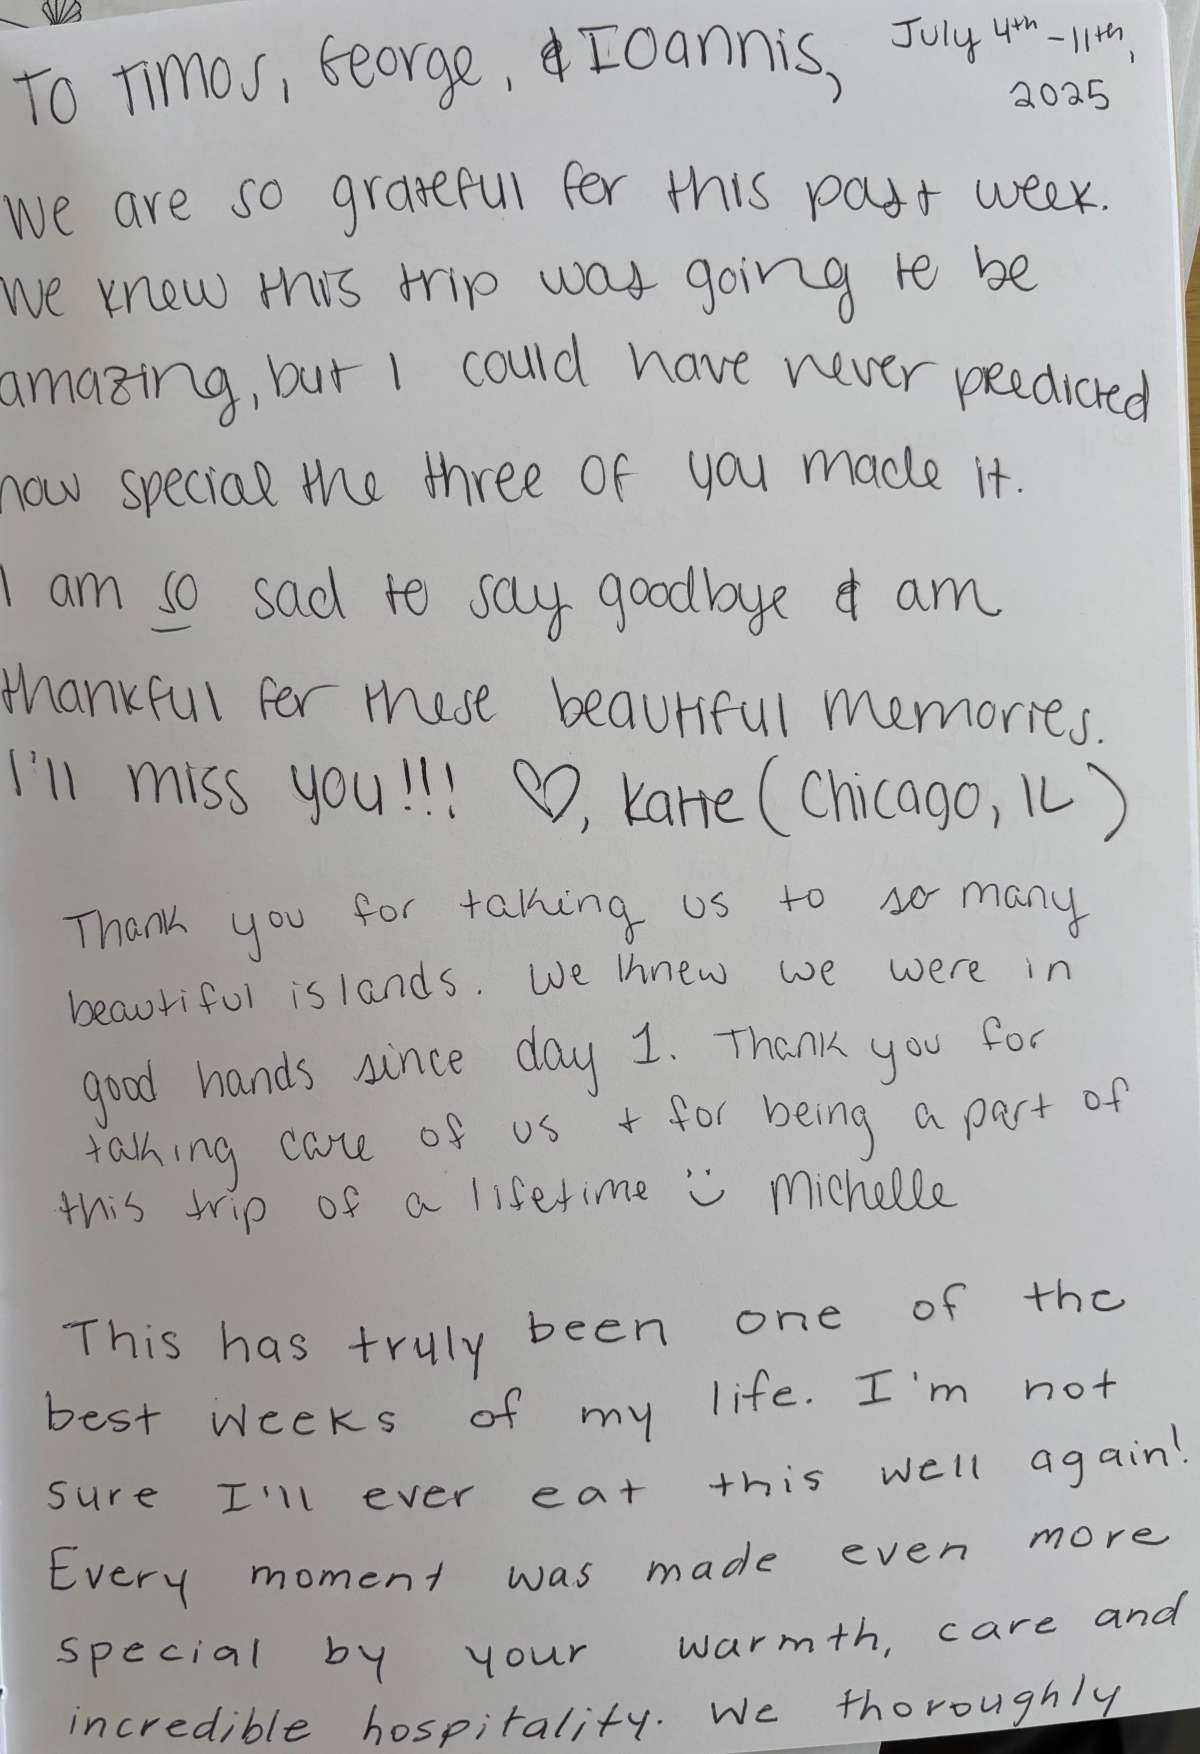 To Timos, George, & Ioannis,
July 4th - 11th,
2025
We are so grateful for this past week.
We knew this trip was going to be
amazing, but I could have never predicted
how special the three of you made it.
I am so sad to say goodbye & am
thankful for these beautiful memories.
I'll miss you!!! ♡, Katie (Chicago, IL)
Thank you for taking us to so many
beautiful islands. We knew we were in
good hands since day 1. Thank you for
taking care of us + for being a part of
this trip of a lifetime :) Michelle
This has truly been one of the
best weeks of my life. I'm not
sure I'll ever eat this well again!
Every moment was made even more
special by your warmth, care and
incredible hospitality. We thoroughly